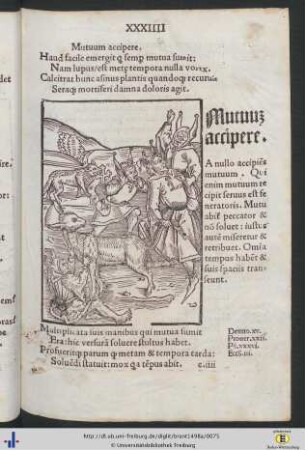 XXXIIII
Mutuum accipere.
Haud facile emergit q̄ semp mutua sumit:
Nam lupus est metę tempora nulla vorax.
Calcitrat hunc asinus plantis quandoq recuruis
Seraq mortiferi damna doloris agit.
Mutuuz
accipere.
A nullo accipies
mutuum. Qui
enim mutuum re
cipit seruus est fe
neratoris. Mutu
abit peccator &
nō soluet: iustus
autē miseretur &
retribuet. Omia
tempus habēt &
suis spaciis tran
seunt.
suis manibus qui mutua sumit
versurā soluere stultus habet.
parum q metam & tempora tarda:
statuit: mox q̄ tēpus abit. e.iiii
Deutro.xv.
Prouer.xxii.
Ps.xxxvi.
Eccl.iii.
http://dl.ub.uni-freiburg.de/diglit/brant1498a/0075
© Universitätsbibliothek Freiburg